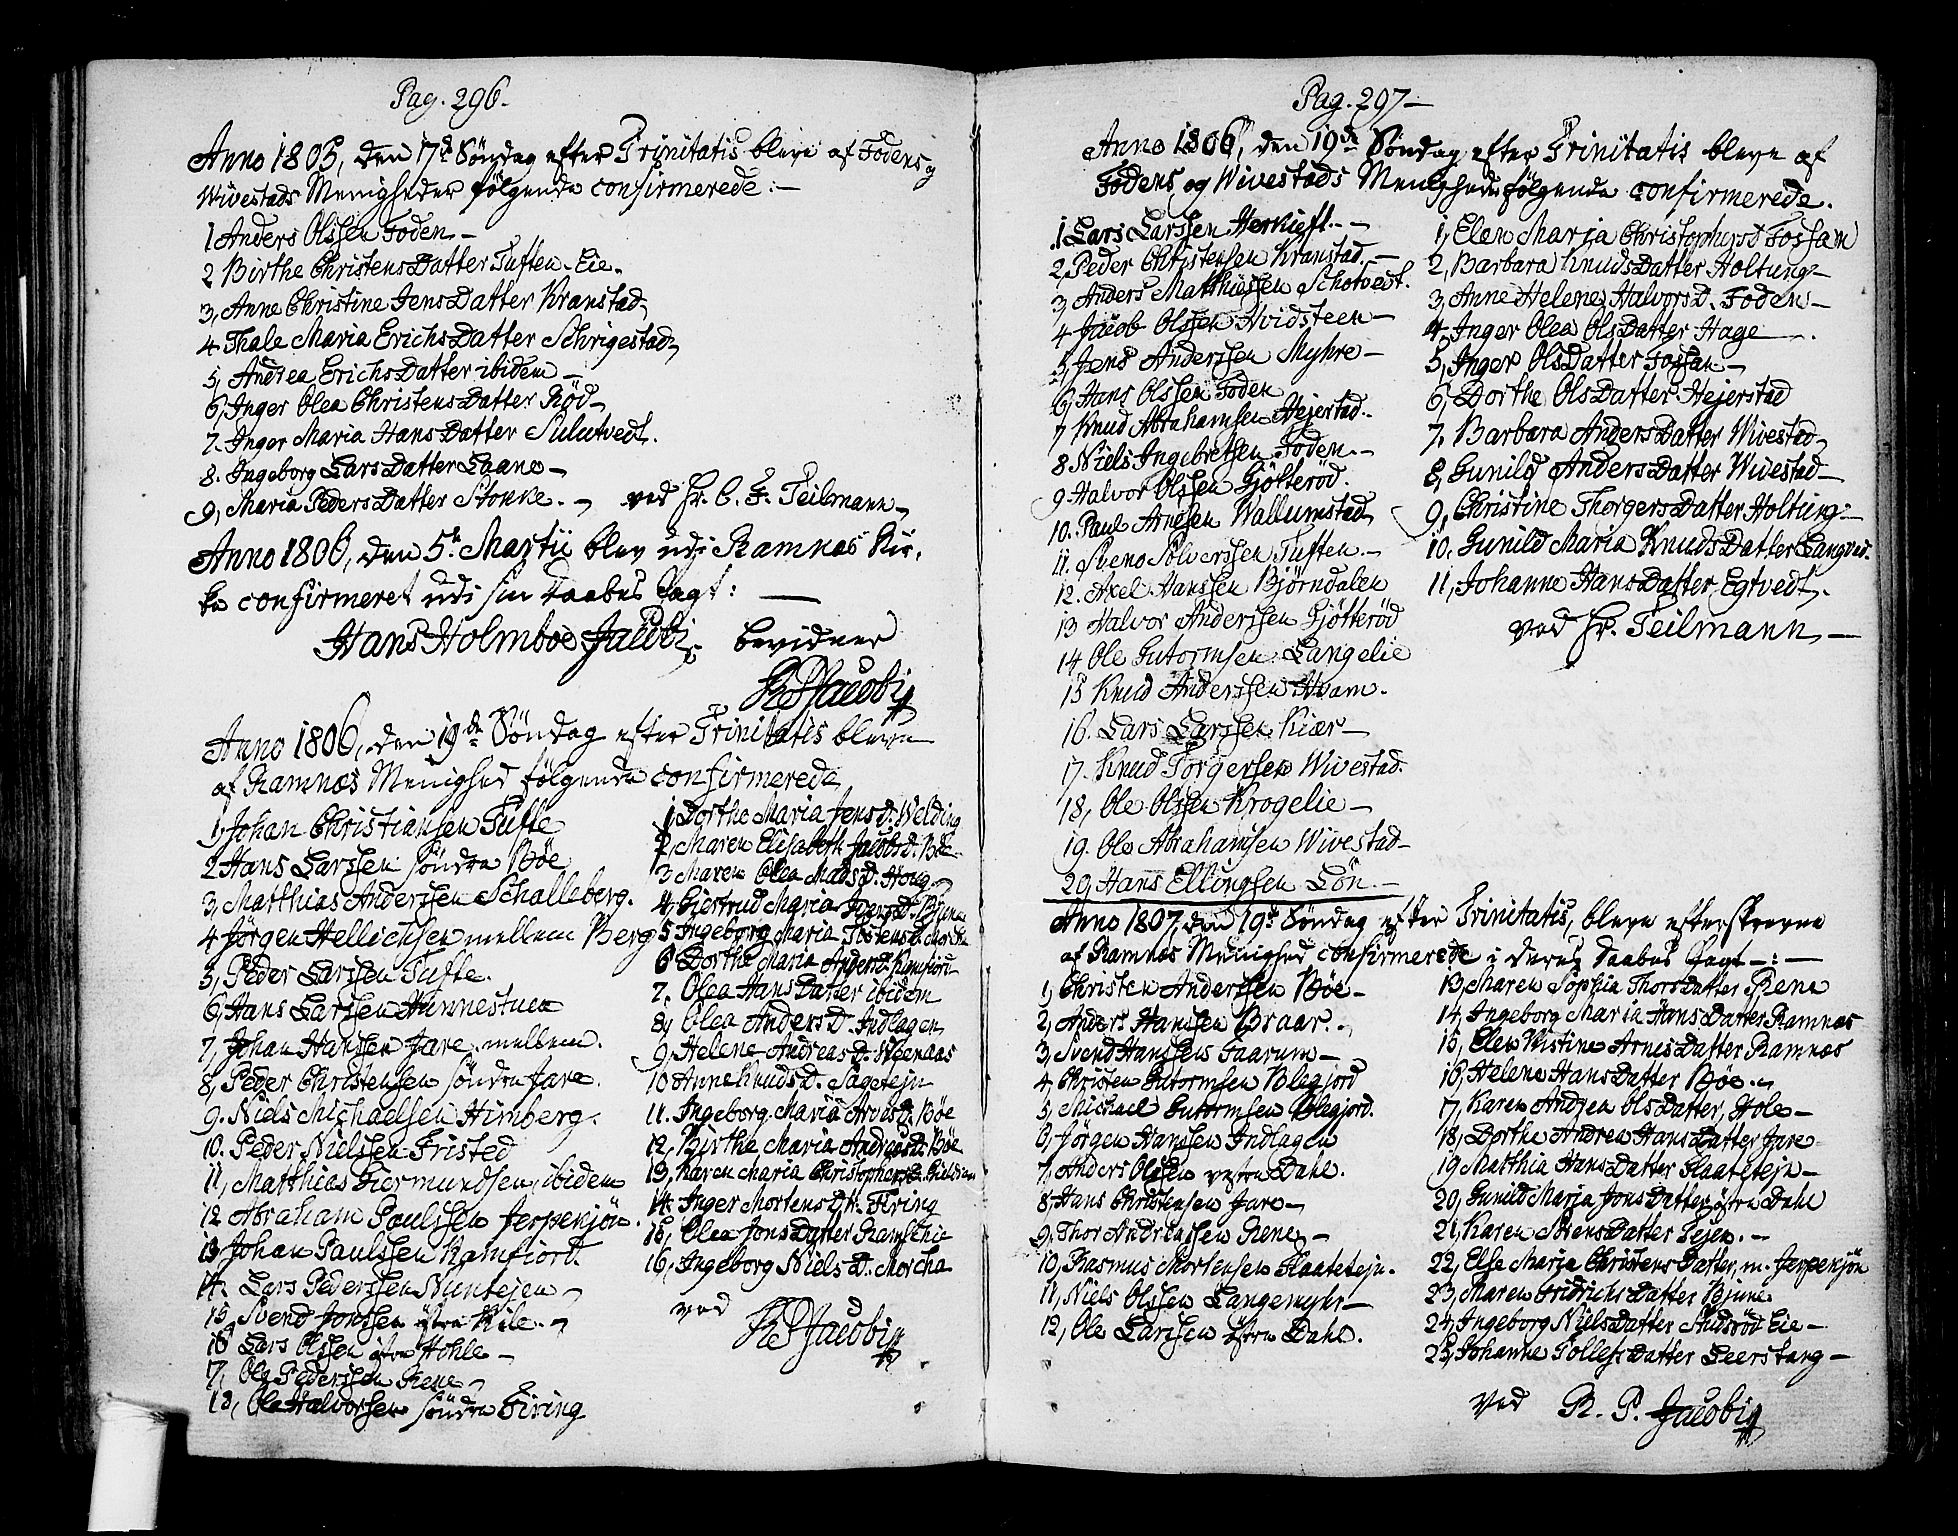 Pag. 296.
Anno 1805, den 17de Søndag efter Trinitatis bleve af Fodens og
Wivestads Menigheder følgende confirmerede:—
1 Anders Olssen Foden—
2 Birthe ChristensDatter Tuften. Eie.
3, Anne Christine JensDatter Kranstad,
4. Thale Maria ErichsDatter Schrigestad,
5, Andrea ErichsDatter ibidem—
6, Inger Olea ChristensDatter Röd—
7. Inger Maria HansDatter Sulutvedt.
8. Ingeborg LarsDatter Laane—
9, Maria PedersDatter Stokke.— ved Hr. C. F. Teilmann,
Anno 1806, den 5te Martii blev udi Ramnæs Kir-
ke confirmeret udi sin Daabes Pagt:—
Hans Holmboe Jacobi, bevidner
R P Jacobi
Anno 1806, den 19de Søndag efter Trinitatis bleve
af Ramnæs Menighed følgende confirmerede
1, Johan Christiansen Tufte
2 Hans Larssen søndre Böe
3, Matthias Anderssen Schalleberg.
4 Jörgen Hellichsen mellem Berg
5, Peder Larssen Tufte.
6, Hans Larssen Nunnestuen
7, Johan Hansen Jare mellem.
8, Peder Christensen søndre Jare.
9. Niels Michaelsen Himberg.
10. Peder Nielssen Fristed
11, Matthias Giermundsen, ibidem
12 Abraham Poulssen Jerpekjön.
13 Johan Paulssen Ramfiord.
14. Lars Pederssen Nuntejen—
15 Svend Jonssen østre Hile.—
16 Lars Olssen østre Hohle—
17, Ole Pederssen Rene—
18, Ole Halvorsen søndre Firing
1 Dorthe Maria JensD. Welding
2, Maren Elisabeth JacobsD. Böe
3 Maren Olea MadsD. Houg—
4, Giertrud Maria D. Bjune
5 Ingeborg Maria D.
6 Dorthe Maria AndersD. Ramfiord
7. Olea HansDatter ibidem
8, Olea AndersD. Indlagen
9, Helene AndreasD. Weenaas
10 Anne KnudsD. Sagetejn
11. Ingeborg Maria ArnesD. Böe
12, Birthe Maria AndreasD. Böe
13, Karen Maria ChristophersD.
14. Inger MortensDtr. Firing
15, Olea JonsDatter Ramschie
16, Ingeborg NielsD. Morcha
ved
R P Jacobi
Pag. 297—
Anno 1806, den 19de Søndag efter Trinitatis bleve af
Fodens og Wivestads Menigheder følgende confirmerede.
1 Lars Larssen Herkieft.—
2, Peder Christensen Kranstad.—
3, Anders Matthiessen Schotvedt.
4 Jacob Olssen Hvidsteen—
5, Jens Anderssen Myhre—
6, Hans Olssen Foden
7 Knud Abrahamsen Hejerstad.
8 Niels Ingebretsen Foden.—
9 Halvor Olssen Gjötteröd.
10. Paul Arnesen Wallumstad,
11. Sveno Sölverssen Tuften.—
12. Axel Hanssen Björndalen
13 Halvor Anderssen Gjötteröd
14 Ole Gutormsen Langelie
15 Knud Anderssen Hvam.
16. Lars Larssen Kiær—
17. Knud Torgersen Wivestad.
18, Ole Olssen Krogelie—
19. Ole Abrahamsen Wivestad—
20, Hans Ellingsen Lön.—
1, Elen Marja ChristophersD Fossan
2, Barbara KnudsDatter Holtung—
3, Anne Helene HalvorsD. Foden—
4, Inger Olea OlsDatter Hage—
5, Inger OlsDatter Fossan—
6, Dorthe OlsDatter Hejerstad
7. Barbara AndersDatter Wivestad,
8, Gunild AndersDatter Wivestad—
9, Christine ThorgersDatter Holtung—
10. Gunild Maria KnudsDatter Langved.
11, Johanne HansDatter Egtvedt.
ved Hr. Teilmann,—
Anno 1807, den 19de Søndag efter Trinitatis, bleve efterskrevne
af Ramnæs Menighed confirmerede i deres Daabes Pagt—:—
1, Christen Anderssen Böe—
2, Anders Hanssen Braar.—
3, Svend Hanssen Faarum—
4. Christen Gutormsen Blegjord
5, Michael Gutormsen Blegjord.
6, Jörgen Hanssen Indlagen
7, Anders Olssen vestre Dahl.
8, Hans Christensen Jare—
9, Thor Andreassen Rene—
10, Rasmus Mortensen Slaatetejn.
11, Niels Olssen Langemyhr—
12, Ole Larssen østre Dahl.
13, Maren Sophia ThorsDatter Rene
14, Ingeborg Maria HansDatter Ramnæs
15, Elen Kistine ArnesDatter Ramnæs
16, Helene HansDatter Böe.—
17, Karen Andrea OlsDatter, Hole—
18, Dorthe Andrea HansDatter Jare—
19 Matthia HansDatter Slaatetejn—
20, Gunild Marja JonsDatter østre Dahl
21, Karen StensDatter Tejen.—
22, Else Marja ChristensDatter, m. Jerpekjön
23, Maren FridrichsDatter Bjune
24, Ingeborg NielsDatter Sundröd Eie—
25, Johanne TollefsDatter Leerstang—
ved R. P. Jacobi